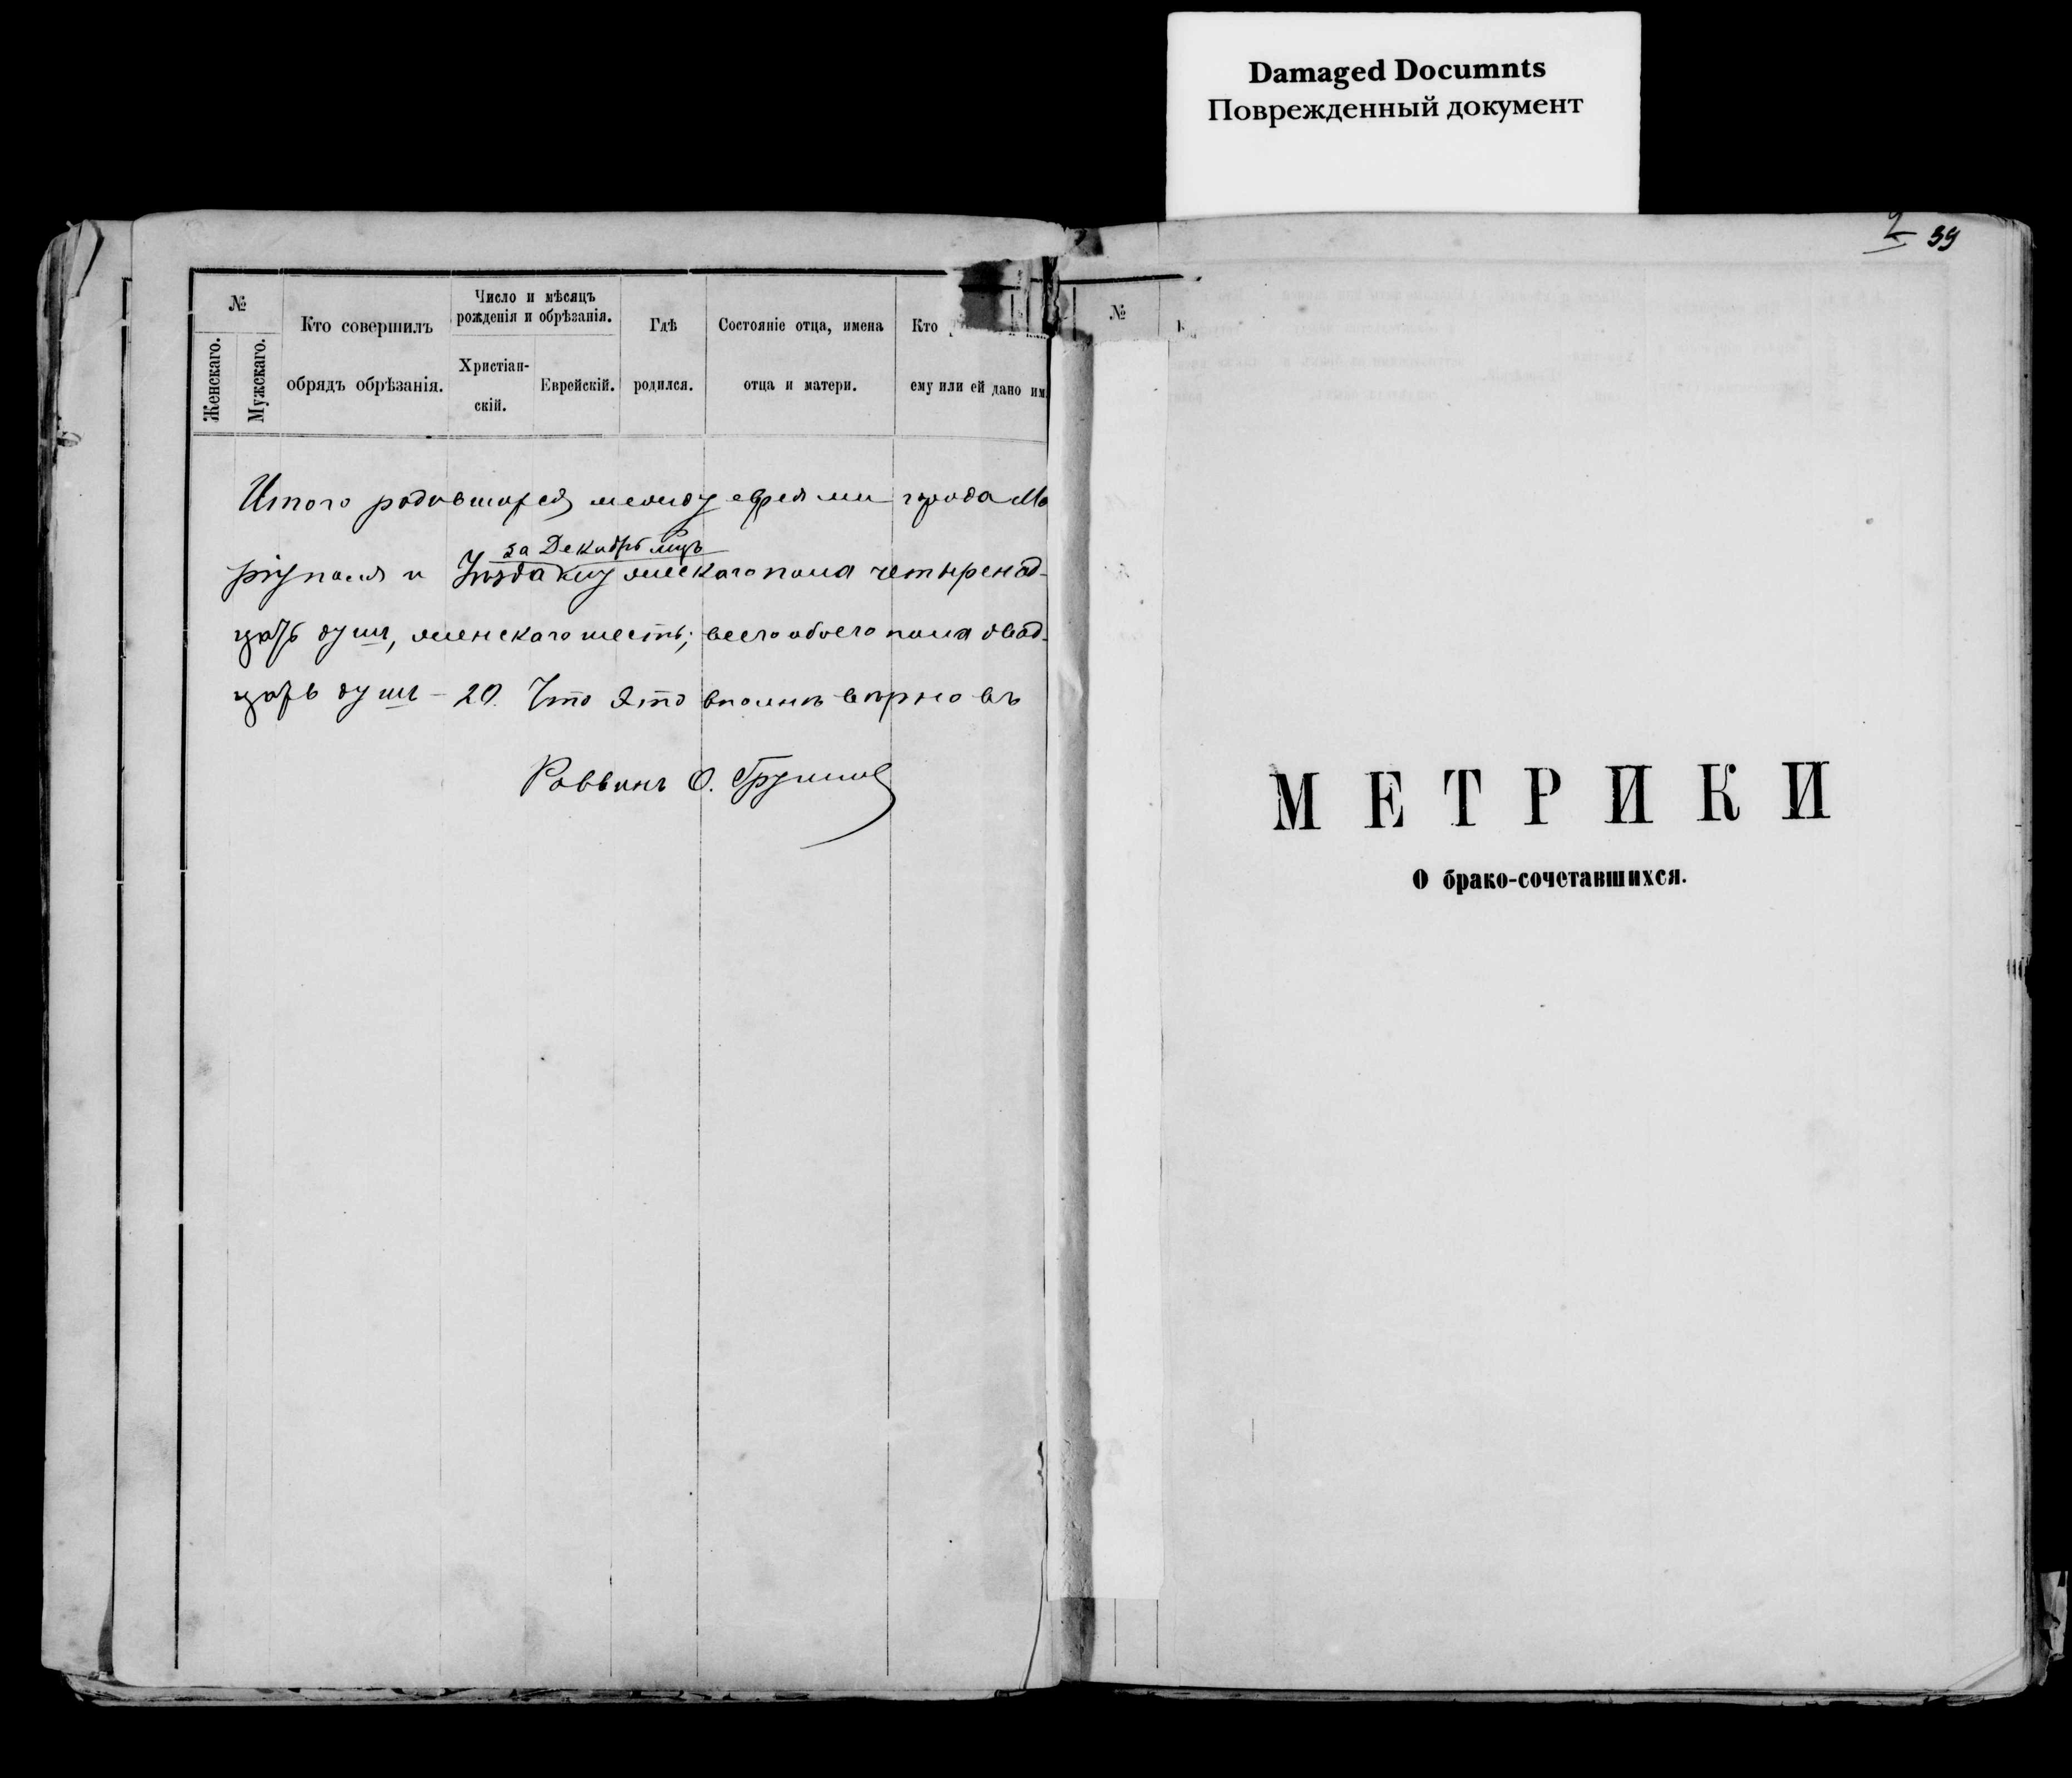 Damaged Documnts
Поврежденный документ
2 39
№
Женскаго.
Мужскаго.
Кто совершилъ
обрядъ обрѣзанія.
Число и мѣсяцъ
рожденія и обрѣзанія.
Христіан-
скій.
Еврейскій.
Гдѣ
родился.
Состояніе отца, имена
отца и матери.
Кто
ему или ей дано им
Итого родившихся между евреями города Ма
ріуполя и Уѣзда мужескаго пола четыренад-
за Декабрь мцъ
цать душъ, женскаго шесть; всего обоего пола двад-
цать душъ - 20. Что это вполнѣ вѣрно въ
Раввинъ О.
№
МЕТРИКИ
О брако-сочетавшихся.